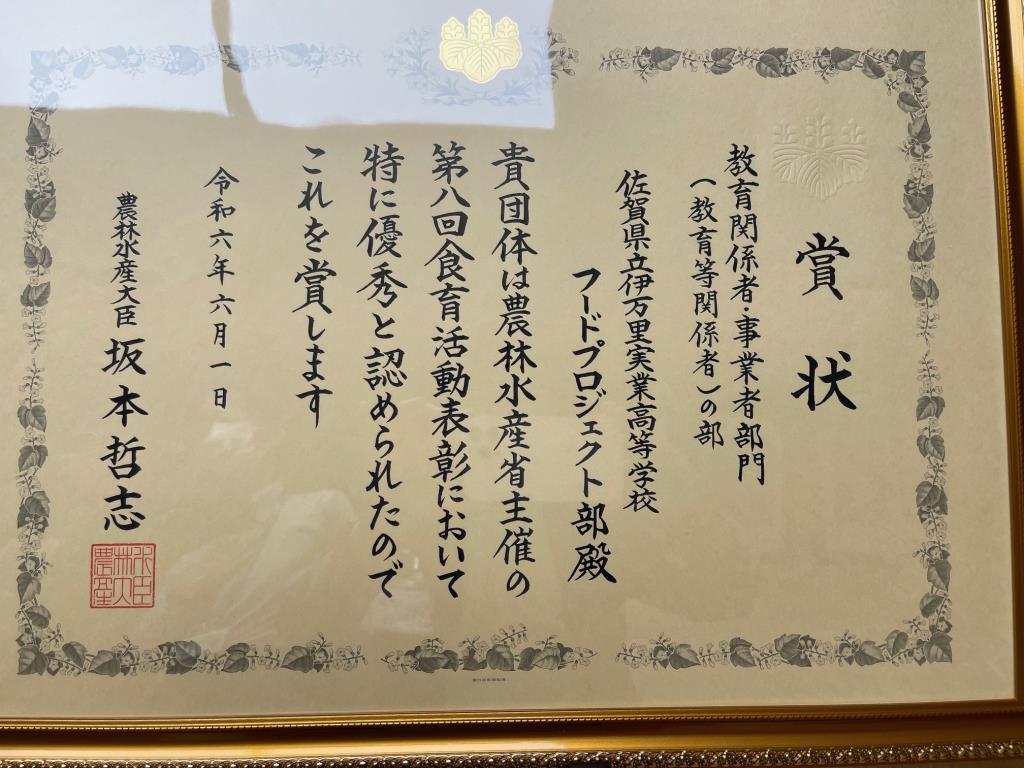 賞状
教育関係者・事業者部門
（教育等関係者）の部
佐賀県立伊万里実業高等学校
フードプロジェクト部殿
貴団体は農林水産省主催の
第八回食育活動表彰において
特に優秀と認められたので
これを賞します
令和六年六月一日
農林水産大臣 坂本哲志